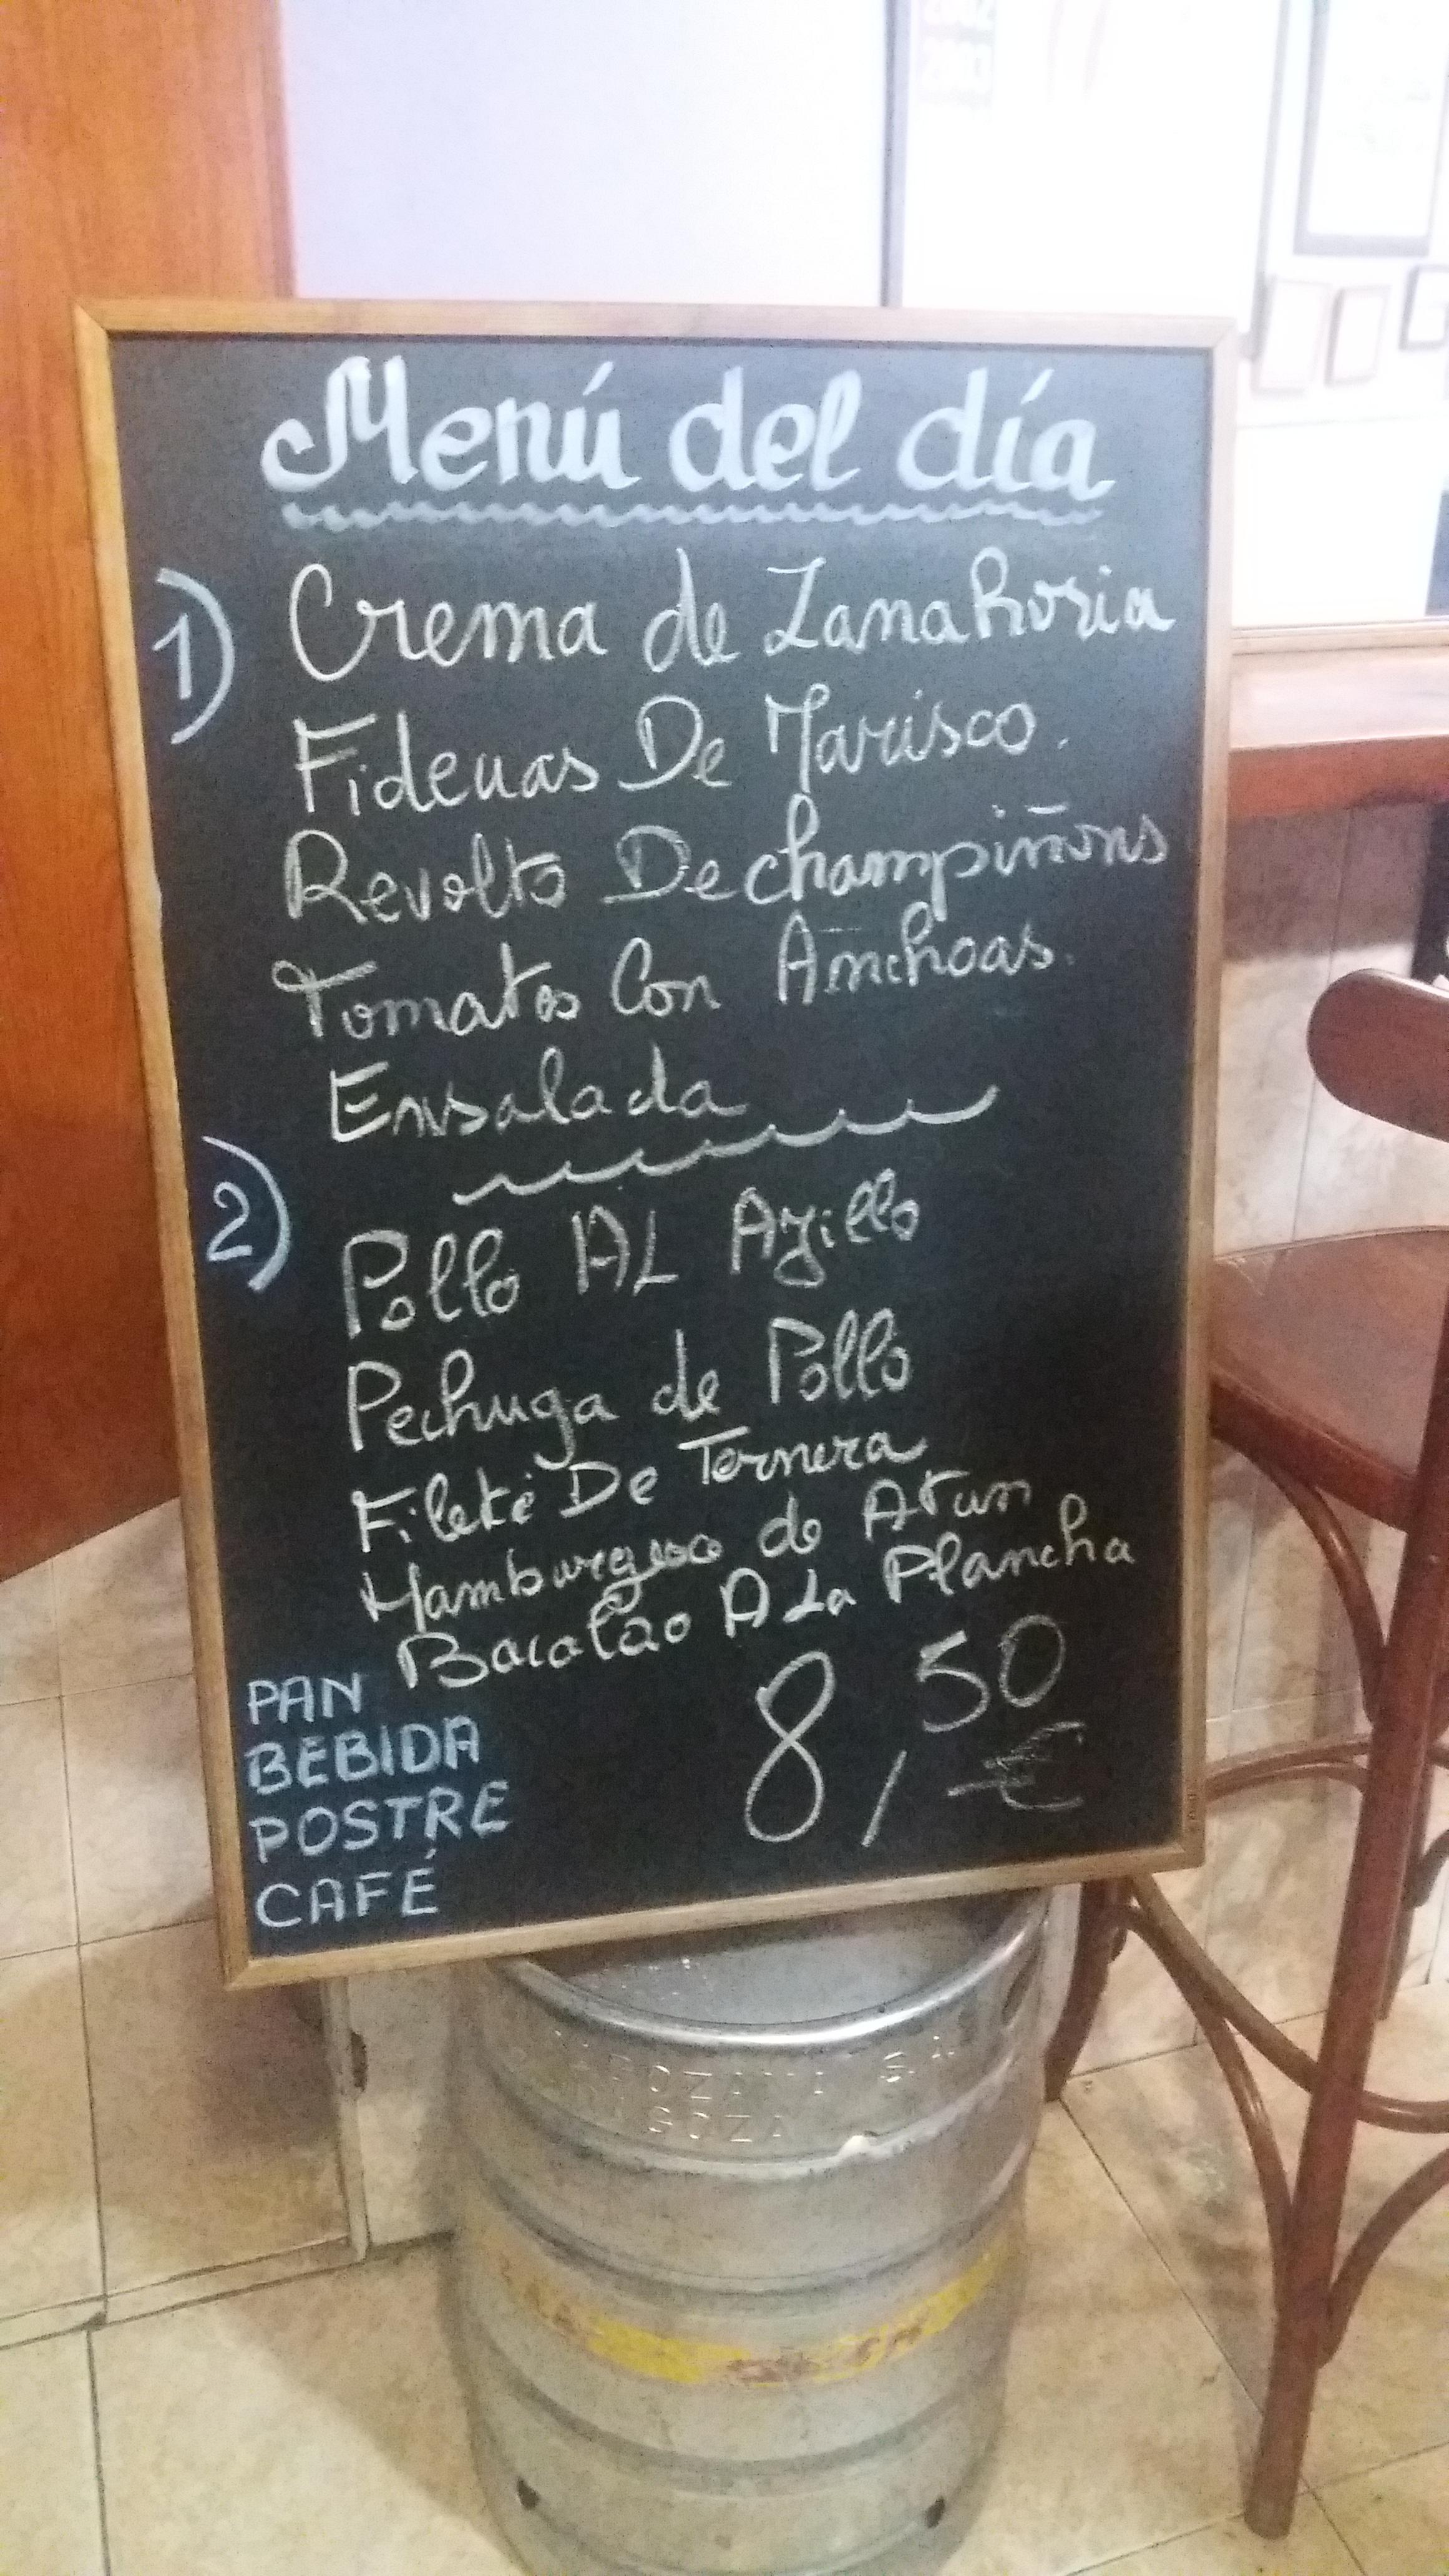 2002
2003
Menú del día
1) Crema de Zanahoria
Fideuas De Marisco.
Revolto De champiñons
Tomates Con Anchoas.
Ensalada
2) Pollo AL Ajillo
Pechuga de Pollo
Filete De Ternera
de Atun
Bacalao A La Plancha
PAN
BEBIDA
POSTRE
CAFÉ
8,50
€
S.A.